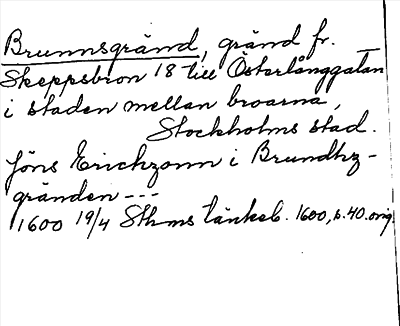 Brunnsgränd, gränd fr.
Skeppsbron 18 till Österlånggatan
i staden mellan broarna,
Stockholms stad.
Jöns Erichzonn i Brundhz-
gränden ---
1600 19/4 Sthms tänkeb. 1600, s. 40. orig